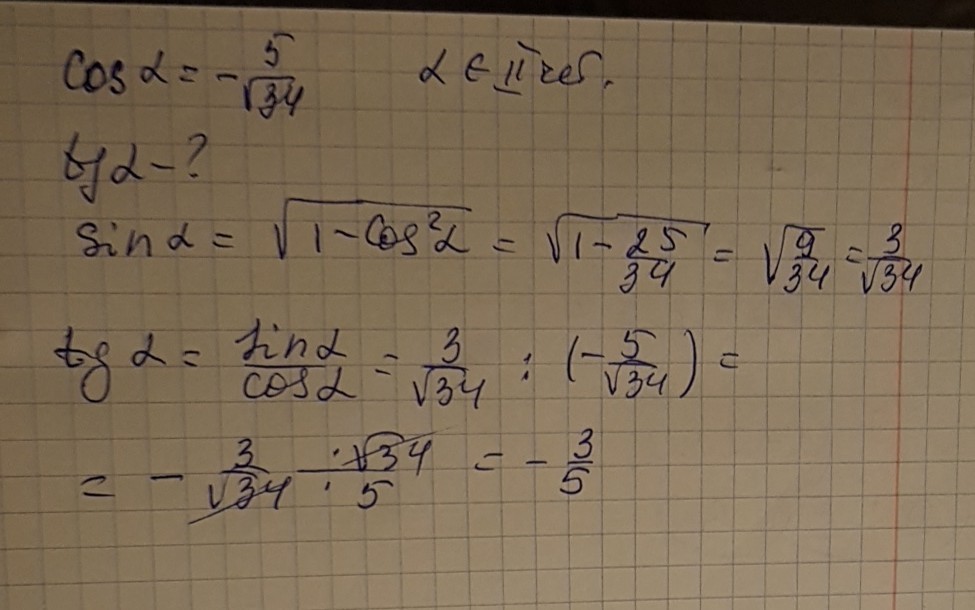 cos α = - 5/√34 α ∈ II чет.
tg α - ?
sin α = √(1 - cos²α) = √(1 - 25/34) = √(9/34) = 3/√34
tg α = sin α/cos α = 3/√34 : (- 5/√34) =
= - 3/√34 · √34/5 = - 3/5